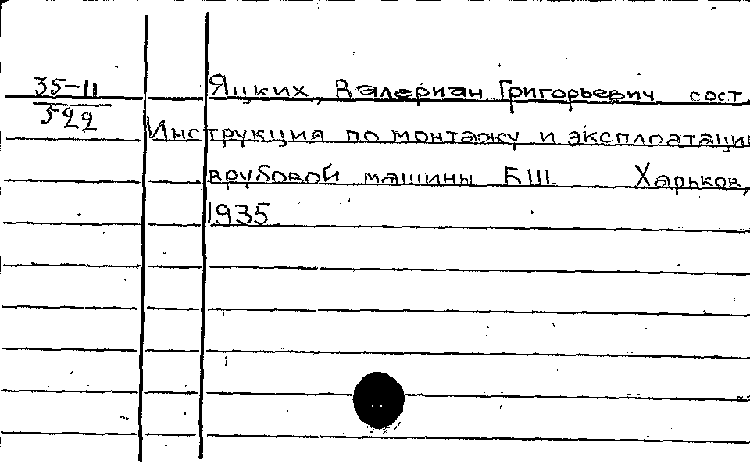 35-11 Яцких, Валериан Григорьевич сост.
522 Инструкция по монтажу и эксплоатации
врубовой машины БШ Харьков,
1935